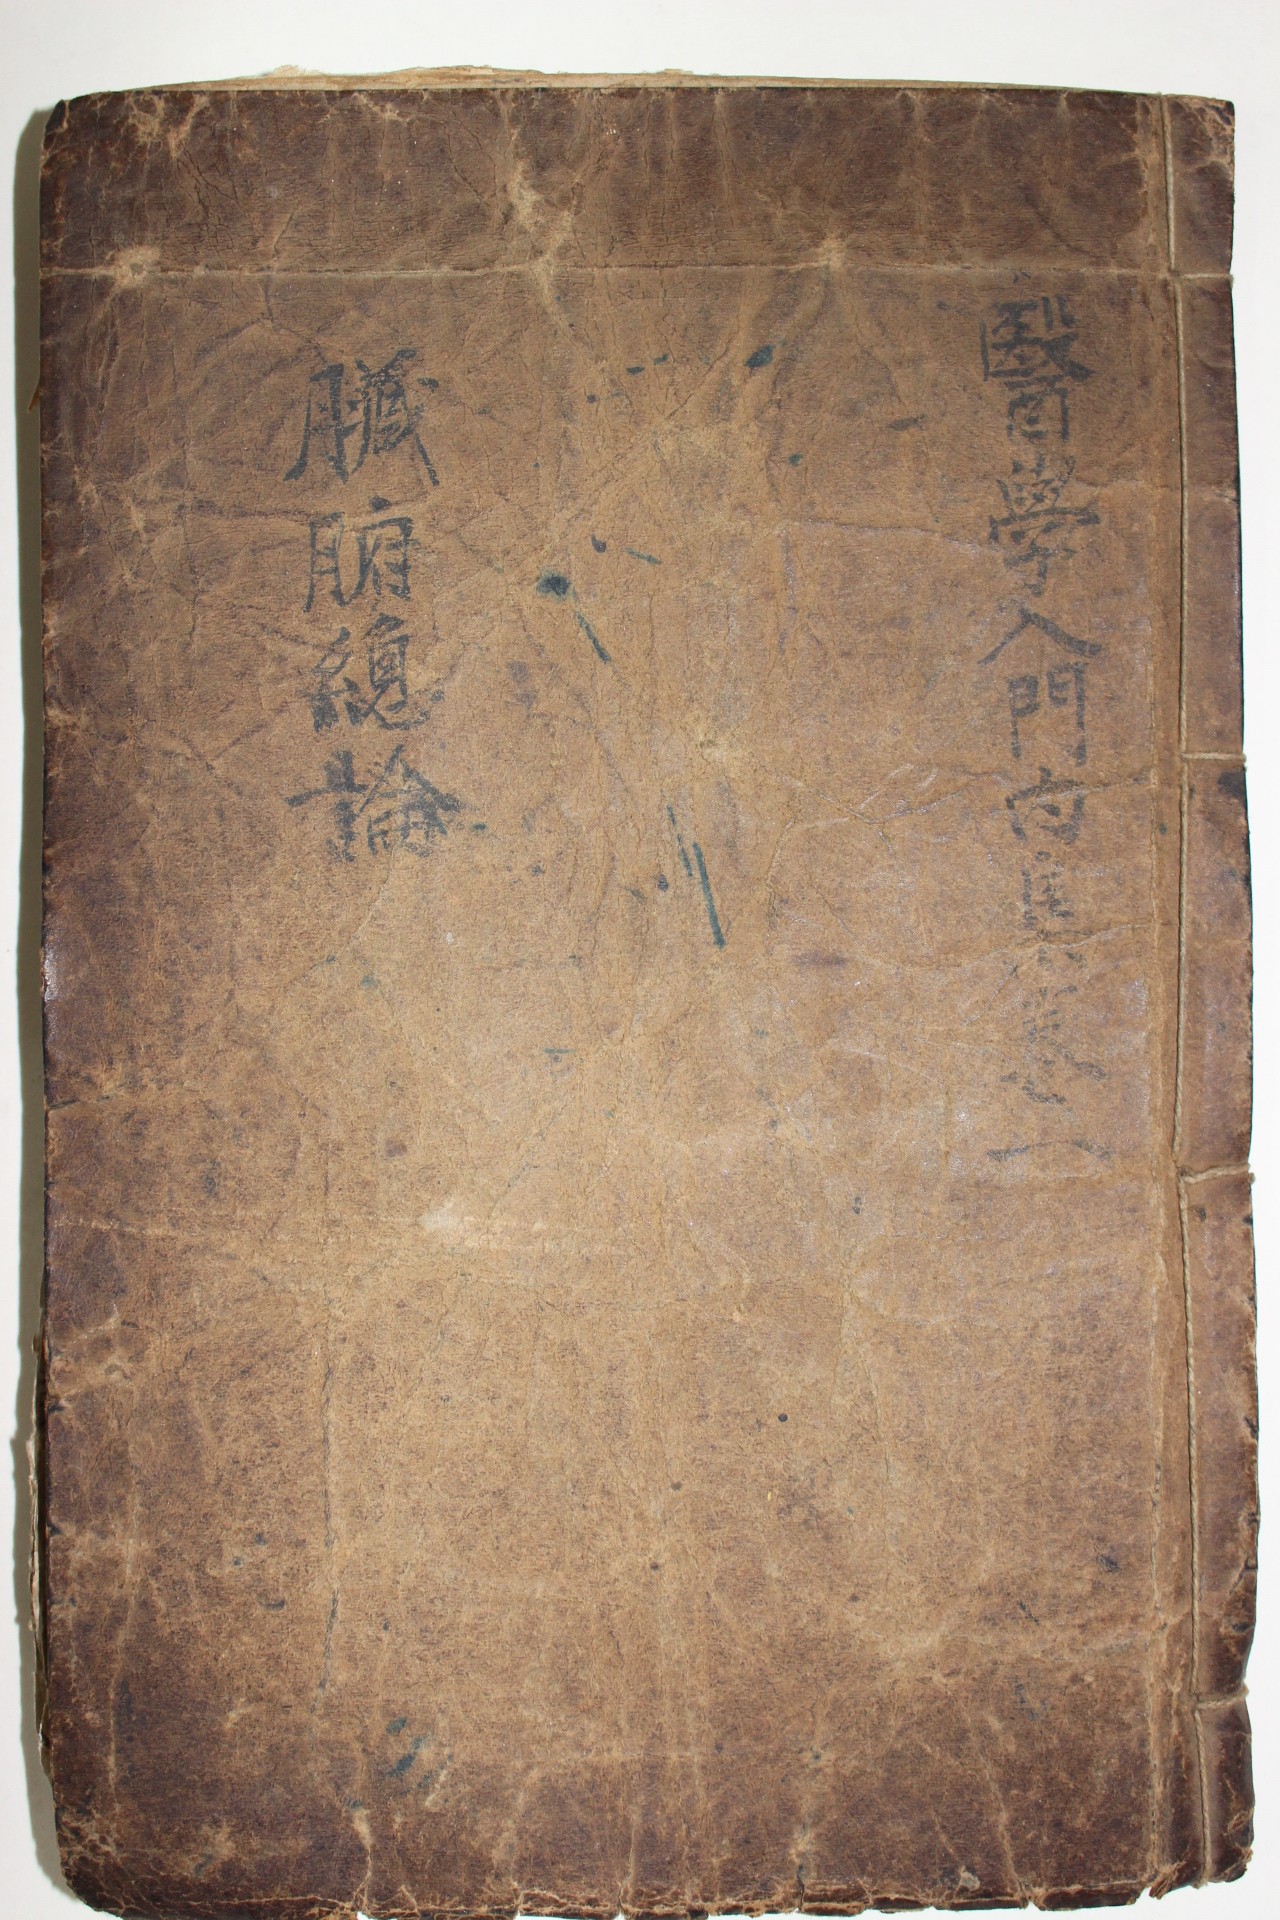 醫學入門內集卷一
臟腑總論